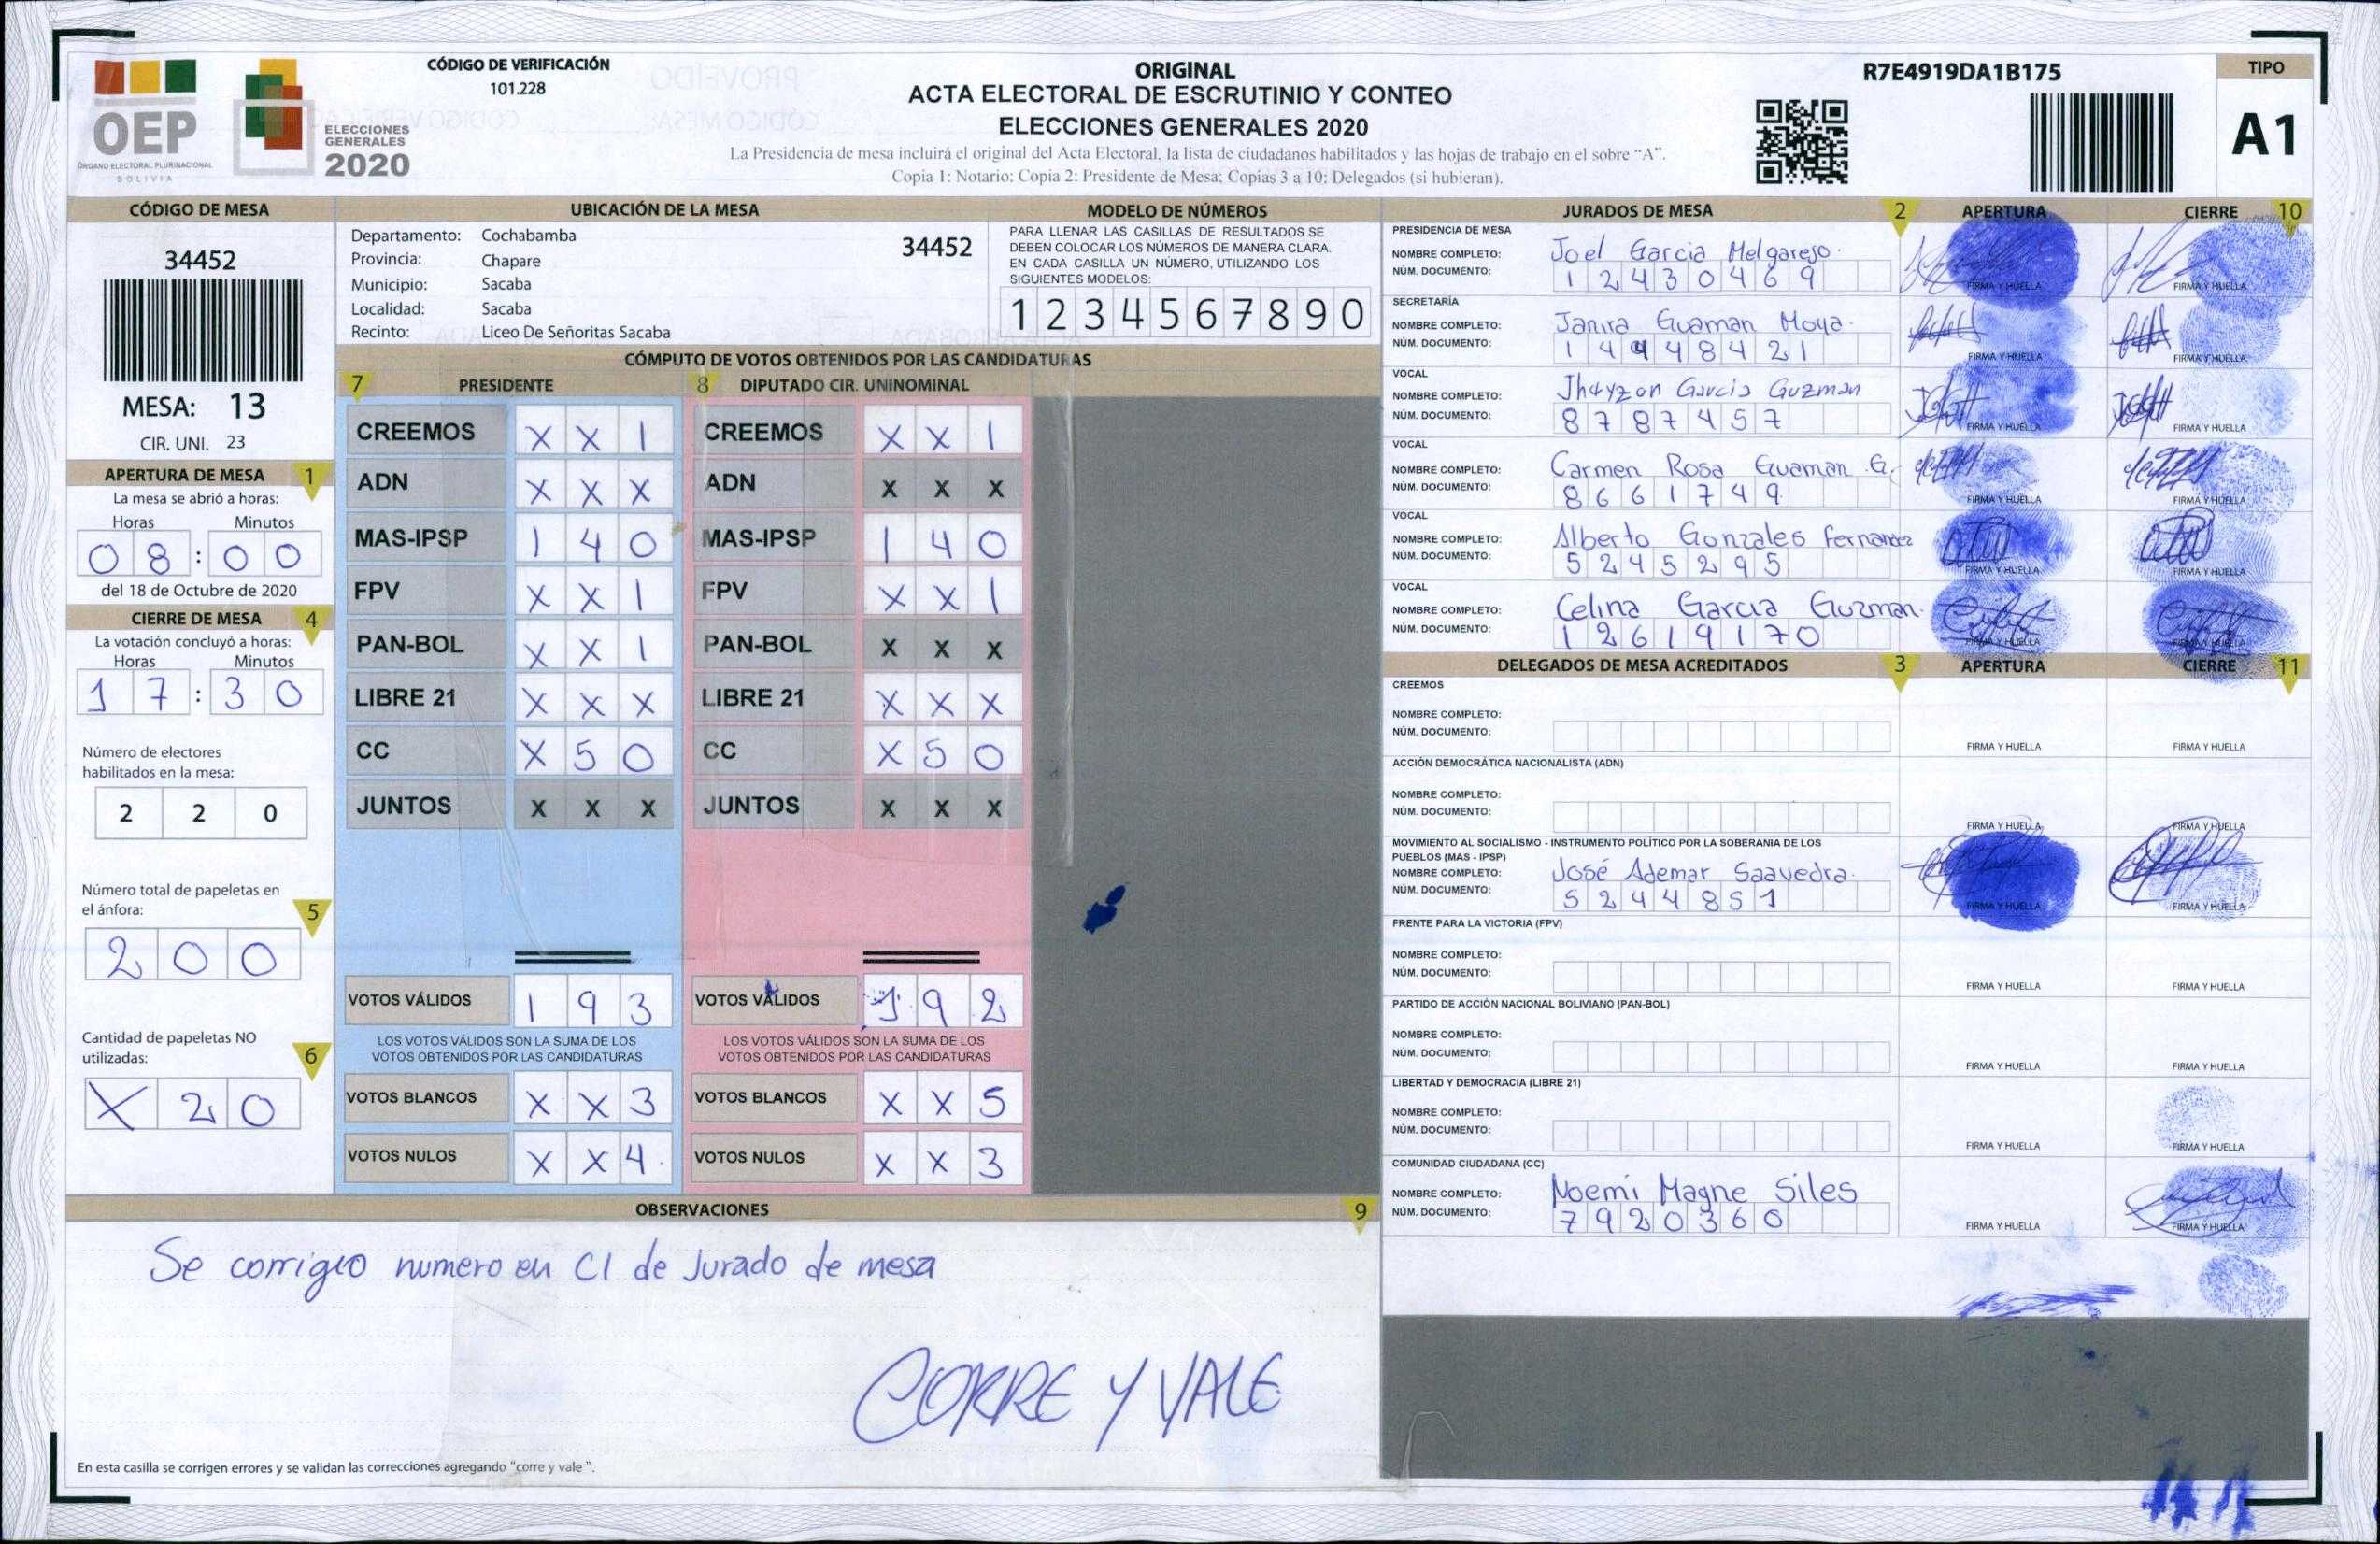 OEP
ÓRGANO ELECTORAL PLURINACIONAL
BOLIVIA
ELECCIONES
GENERALES
2020
CÓDIGO DE VERIFICACIÓN
101.228
ORIGINAL
ACTA ELECTORAL DE ESCRUTINIO Y CONTEO
ELECCIONES GENERALES 2020
La Presidencia de mesa incluirá el original del Acta Electoral, la lista de ciudadanos habilitados y las hojas de trabajo en el sobre "A".
Copia 1: Notario; Copia 2: Presidente de Mesa; Copias 3 a 10: Delegados (si hubieran).
R7E4919DA1B175
TIPO
A1
CÓDIGO DE MESA
34452
MESA: 13
CIR. UNI. 23
APERTURA DE MESA 1
La mesa se abrió a horas:
Horas Minutos
08:00
del 18 de Octubre de 2020
CIERRE DE MESA 4
La votación concluyó a horas:
Horas Minutos
17:30
Número de electores
habilitados en la mesa:
2 2 0
Número total de papeletas en
el ánfora: 5
2 0 0
Cantidad de papeletas NO
utilizadas: 6
X 2 0
UBICACIÓN DE LA MESA
Departamento: Cochabamba 34452
Provincia: Chapare
Municipio: Sacaba
Localidad: Sacaba
Recinto: Liceo De Señoritas Sacaba
MODELO DE NÚMEROS
PARA LLENAR LAS CASILLAS DE RESULTADOS SE
DEBEN COLOCAR LOS NÚMEROS DE MANERA CLARA.
EN CADA CASILLA UN NÚMERO, UTILIZANDO LOS
SIGUIENTES MODELOS:
1 2 3 4 5 6 7 8 9 0
CÓMPUTO DE VOTOS OBTENIDOS POR LAS CANDIDATURAS
7 PRESIDENTE 8 DIPUTADO CIR. UNINOMINAL
CREEMOS X X 1 CREEMOS X X 1
ADN X X X ADN X X X
MAS-IPSP 1 4 0 MAS-IPSP 1 4 0
FPV X X 1 FPV X X 1
PAN-BOL X X 1 PAN-BOL X X X
LIBRE 21 X X X LIBRE 21 X X X
CC X 5 0 CC X 5 0
JUNTOS X X X JUNTOS X X X
VOTOS VÁLIDOS 1 9 3 VOTOS VÁLIDOS 1 9 2
LOS VOTOS VÁLIDOS SON LA SUMA DE LOS LOS VOTOS VÁLIDOS SON LA SUMA DE LOS
VOTOS OBTENIDOS POR LAS CANDIDATURAS VOTOS OBTENIDOS POR LAS CANDIDATURAS
VOTOS BLANCOS X X 3 VOTOS BLANCOS X X 5
VOTOS NULOS X X 4 VOTOS NULOS X X 3
OBSERVACIONES 9
Se corrigio numero en CI de Jurado de mesa
CORRE Y VALE
En esta casilla se corrigen errores y se validan las correcciones agregando "corre y vale ".
JURADOS DE MESA 2 APERTURA CIERRE 10
PRESIDENCIA DE MESA
NOMBRE COMPLETO: Joel Garcia Melgarejo.
NÚM. DOCUMENTO: 12430469 FIRMA Y HUELLA FIRMA Y HUELLA
SECRETARÍA
NOMBRE COMPLETO: Janira Guaman Moya.
NÚM. DOCUMENTO: 14448421 FIRMA Y HUELLA FIRMA Y HUELLA
VOCAL
NOMBRE COMPLETO: Jhayzon Garcia Guzman
NÚM. DOCUMENTO: 8787457 FIRMA Y HUELLA FIRMA Y HUELLA
VOCAL
NOMBRE COMPLETO: Carmen Rosa Guaman G.
NÚM. DOCUMENTO: 8661749 FIRMA Y HUELLA FIRMA Y HUELLA
VOCAL
NOMBRE COMPLETO: Alberto Gonzales Fernandez
NÚM. DOCUMENTO: 5245295 FIRMA Y HUELLA FIRMA Y HUELLA
VOCAL
NOMBRE COMPLETO: Celina Garcia Guzman.
NÚM. DOCUMENTO: 12619170 FIRMA Y HUELLA FIRMA Y HUELLA
DELEGADOS DE MESA ACREDITADOS 3 APERTURA CIERRE 11
CREEMOS
NOMBRE COMPLETO:
NÚM. DOCUMENTO: FIRMA Y HUELLA FIRMA Y HUELLA
ACCIÓN DEMOCRÁTICA NACIONALISTA (ADN)
NOMBRE COMPLETO:
NÚM. DOCUMENTO: FIRMA Y HUELLA FIRMA Y HUELLA
MOVIMIENTO AL SOCIALISMO - INSTRUMENTO POLÍTICO POR LA SOBERANIA DE LOS
PUEBLOS (MAS - IPSP)
NOMBRE COMPLETO: José Ademar Saavedra.
NÚM. DOCUMENTO: 5244851 FIRMA Y HUELLA FIRMA Y HUELLA
FRENTE PARA LA VICTORIA (FPV)
NOMBRE COMPLETO:
NÚM. DOCUMENTO: FIRMA Y HUELLA FIRMA Y HUELLA
PARTIDO DE ACCIÓN NACIONAL BOLIVIANO (PAN-BOL)
NOMBRE COMPLETO:
NÚM. DOCUMENTO: FIRMA Y HUELLA FIRMA Y HUELLA
LIBERTAD Y DEMOCRACIA (LIBRE 21)
NOMBRE COMPLETO:
NÚM. DOCUMENTO: FIRMA Y HUELLA FIRMA Y HUELLA
COMUNIDAD CIUDADANA (CC)
NOMBRE COMPLETO: Noemi Magne Siles
NÚM. DOCUMENTO: 7920360 FIRMA Y HUELLA FIRMA Y HUELLA